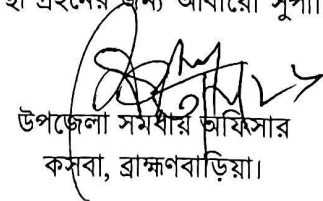 গ্রহনের জন্য আবারো সুপা
উপজেলা সমবায় অফিসার
কসবা, ব্রাহ্মণবাড়িয়া।